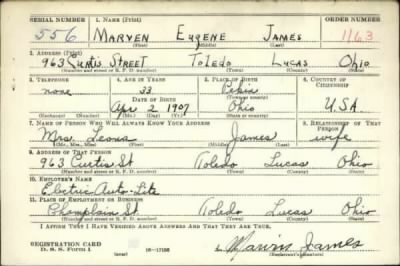 SERIAL NUMBER 1. NAME (Print) ORDER NUMBER
556 MARVEN EUGENE JAMES 1163
(First) (Middle) (Last)
2. ADDRESS (Print)
963 CURTIS STREET TOLEDO LUCAS OHIO
(Number and street or R. F. D. number) (Town) (County) (State)
3. TELEPHONE 4. AGE IN YEARS 5. PLACE OF BIRTH 6. COUNTRY OF CITIZENSHIP
none 33 Pekin
DATE OF BIRTH (Town or county)
Apr 2 1907 Ohio USA
(Exchange) (Number) (Mo.) (Day) (Yr.) (State or country)
7. NAME OF PERSON WHO WILL ALWAYS KNOW YOUR ADDRESS 8. RELATIONSHIP OF THAT PERSON
Mrs. Leona James wife
(Mr., Mrs., Miss) (First) (Middle) (Last)
9. ADDRESS OF THAT PERSON
963 Curtis St Toledo Lucas Ohio
(Number and street or R. F. D. number) (Town) (County) (State)
10. EMPLOYER'S NAME
Electric Auto-Lite
11. PLACE OF EMPLOYMENT OR BUSINESS
Champlain St. Toledo Lucas Ohio
(Number and street or R. F. D. number) (Town) (County) (State)
I AFFIRM THAT I HAVE VERIFIED ABOVE ANSWERS AND THAT THEY ARE TRUE.
REGISTRATION CARD
D. S. S. Form 1 16—17105 Marvin James
(over) (Registrant's signature)